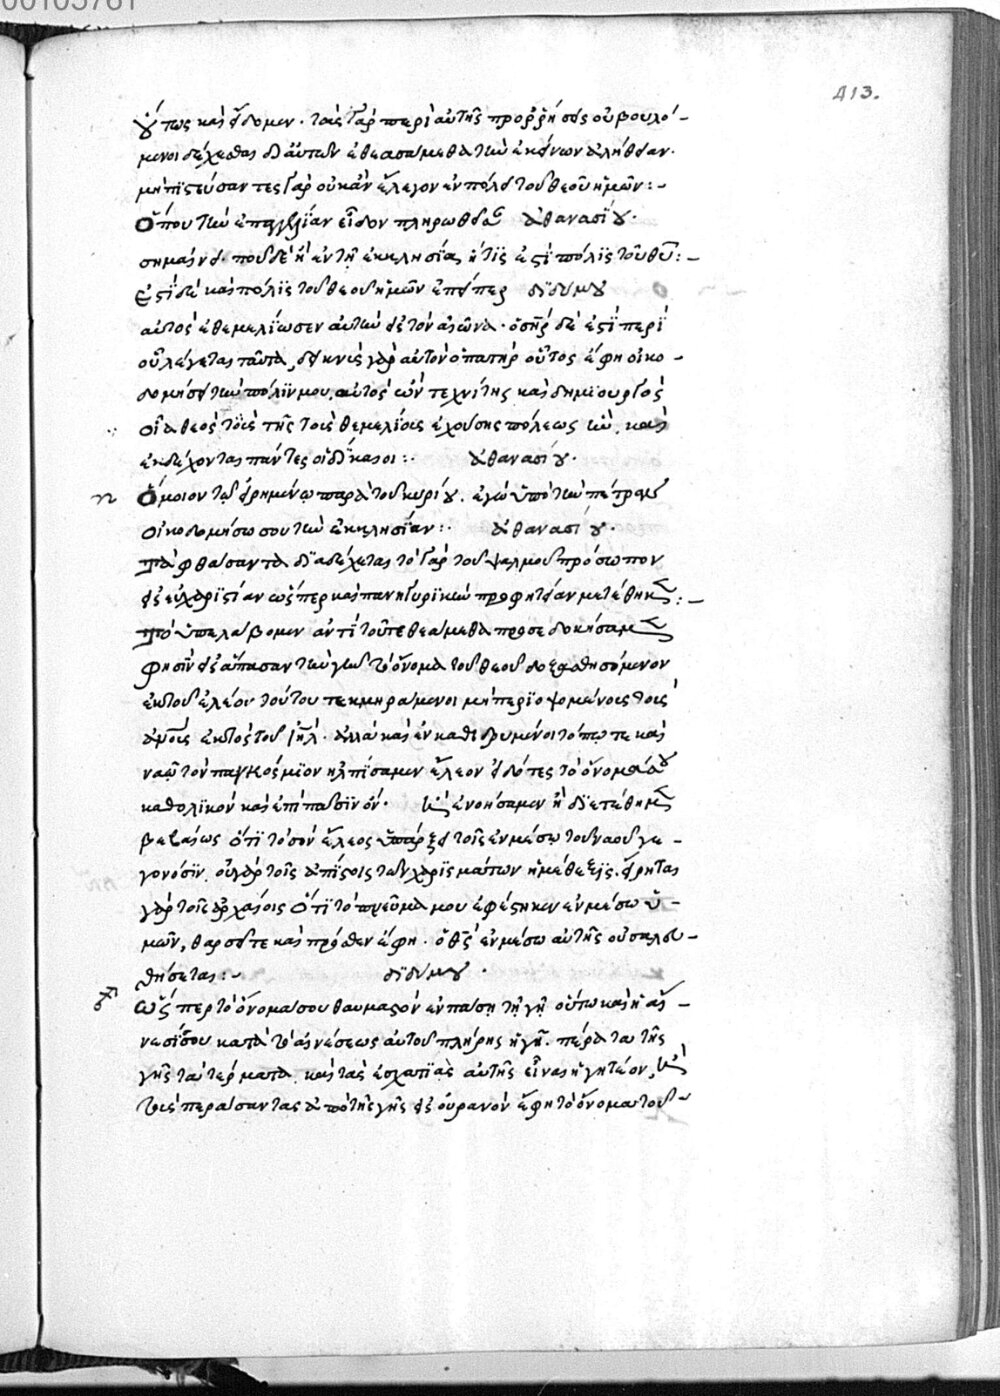 00105761
413.
οὕτως καὶ εἴδομεν. τὰς γὰρ περὶ αὐτῆς προρρήσεις οὐ βουλό-
μενοι δέχεσθαι δι' αὐτῶν ἐθεασάμεθα τὴν ἐκείνων ἀλήθειαν.
μὴ πιστεύσαντες γὰρ οὐκ ἂν ἔλεγον ἐν πόλει τοῦ θεοῦ ἡμῶν:-
Ὅπου τὴν ἐπαγγελίαν εἶδον πληρωθεῖσαν ἀθανασίου.
σημαίνει. ποῦ δὲ ἢ ἐν τῇ ἐκκλησίᾳ ἥτις ἐστὶ πόλις τοῦ θυ:-
Ἐστὶ δὲ καὶ πόλις τοῦ θεοῦ ἡμῶν ἐπείπερ διδύμου
αὐτὸς ἐθεμελίωσεν αὐτὴν εἰς τὸν αἰῶνα. ὁ σηρ δέ ἐστι περὶ
οὗ λέγεται ταῦτα, δεικνὺς γὰρ αὐτὸν ὁ πατὴρ οὗτος ἔφη οἰκο-
δομήσει τὴν πόλιν μου, αὐτὸς ὢν τεχνίτης καὶ δημιουργὸς
οἷα θεὸς τῆς τοὺς θεμελίους ἐχούσης πόλεως ἣν καὶ
ἐκδέχονται πάντες οἱ δίκαιοι:. ἀθανασίου.
Ὅμοιον τῷ εἰρημένῳ παρὰ τοῦ κυρίου. ἐγὼ ὑπὸ τὴν πέτραν
οἰκοδομήσω σου τὴν ἐκκλησίαν:. ἀθανασίου.
τὰ φθάσαντα διαδέχεται τὸ γὰρ τοῦ ψαλμοῦ πρόσωπον
εἰς εὐχαριστίαν ὥσπερ καὶ πανηγυρικὴν προφητείαν μετέθηκεν:-
τὸ ὑπελάβομεν ἀντὶ τοῦ τεθεάμεθα προσεδοκήσαμεν
φησὶν εἰς ἅπασαν τὴν γῆν τὸ ὄνομα τοῦ θεοῦ δοξασθησόμενον
ἐκ τοῦ ἐλέου τούτου τεκμηράμενοι μὴ περιοψομένους τοὺς
ἀνους ἐκτὸς τοῦ ιηλ. ἀλλὰ καὶ ἐν καθιδρυμένοι τόπῳ τε καὶ
ναῷ τὸν παγκόσμιον ἠλπίσαμεν ἔλεον εἰδότες τὸ ὄνομά σου
καθολικὸν καὶ ἐπὶ πᾶσιν ὄν. καὶ ἐνοήσαμεν ἢ διετέθημεν
βεβαίως ὅτι τὸ σὸν ἔλεος ὑπάρξει τοῖς ἐν μέσῳ τοῦ ναοῦ γε-
γονόσιν. οὐ γὰρ τοῖς ἀπίστοις τῶν χαρισμάτων ἡ μέθεξις. εἴρηται
γὰρ τοῖς ἀρχαίοις ὅτι τὸ πνεῦμά μου ἐφέστηκεν ἐν μέσῳ ὑ-
μῶν, θαρσεῖτε καὶ πρόσθεν ἔφη. ὁ θς ἐν μέσῳ αὐτῆς οὐ σαλευ-
θήσεται:- διδύμου.
Ὥσπερ τὸ ὄνομά σου θαυμαστὸν ἐν πάσῃ τῇ γῇ οὕτω καὶ ἡ αἴ-
νεσίς σου κατὰ τὸ αἰνέσεως αὐτοῦ πλήρης ἡ γῆ. πέρατα τῆς
γῆς τὰ τέρματα καὶ τὰς ἐσχατιὰς αὐτῆς εἶναι ἡγητέον, καὶ
τοὺς περάσαντας ἀπὸ τῆς γῆς εἰς οὐρανὸν ἔφη τὸ ὄνομα τοῦ-